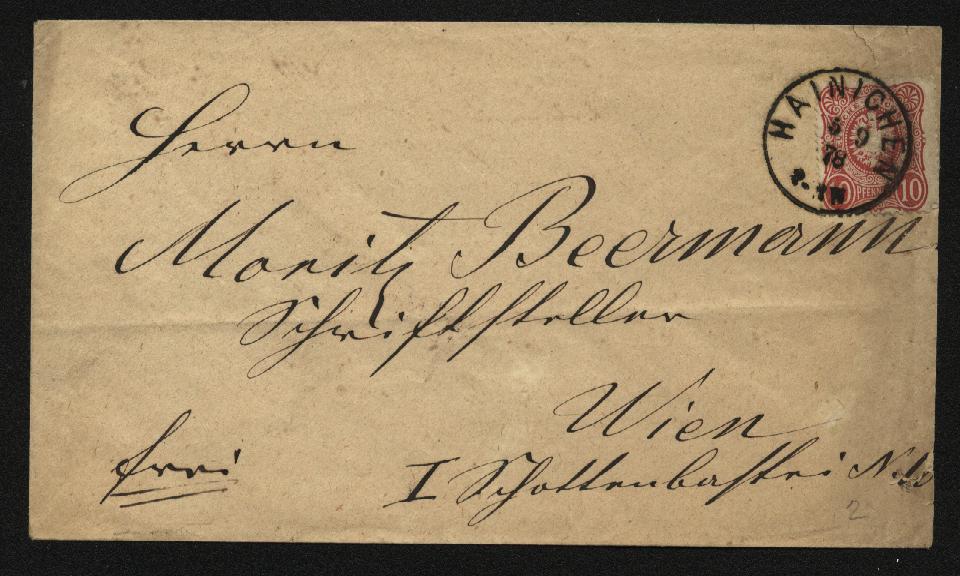 HAINICHEN
5 9
78
10 PFENNIG 10
Herrn
Moritz Beermann
Schriftsteller
Wien
frei
I Schottenbastei N.
2